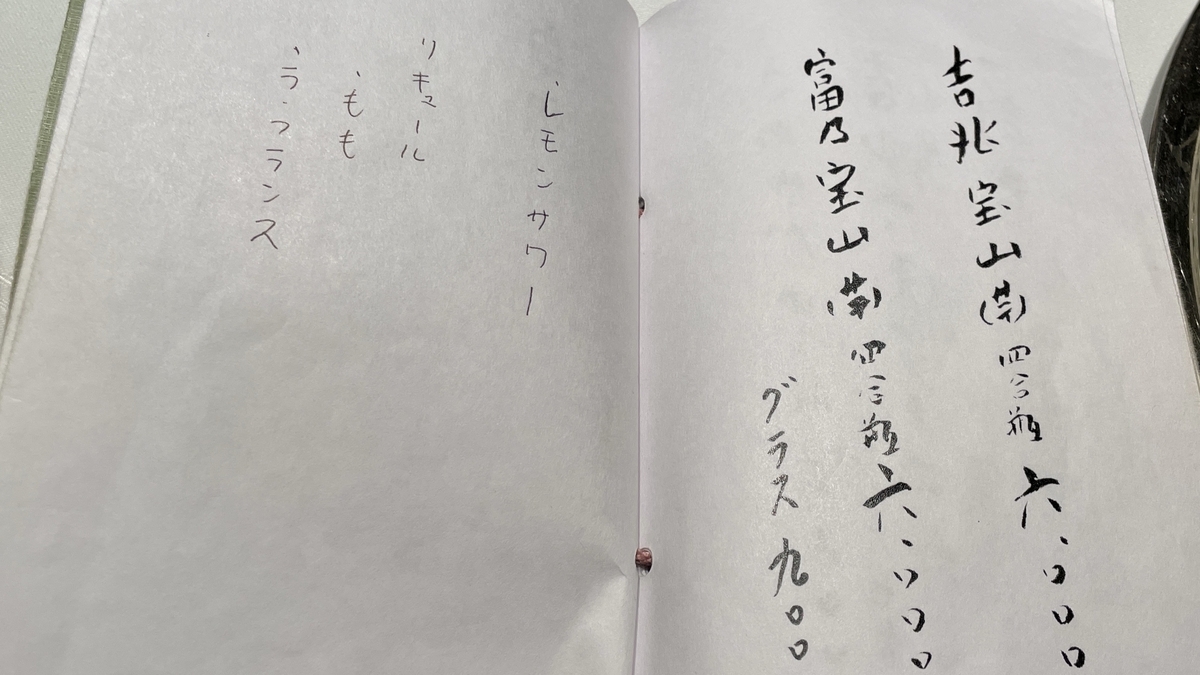 吉兆宝山(芋)四合瓶 六、〇〇〇
富乃宝山(芋)四合瓶 六、〇〇〇
グラス 九〇〇
、レモンサワー
リキュール
、もも
、ラ・フランス